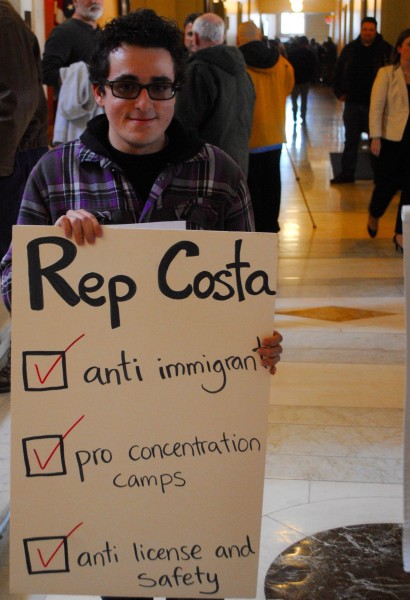 Rep Costa
anti immigrant
pro concentration
camps
anti license and
safety